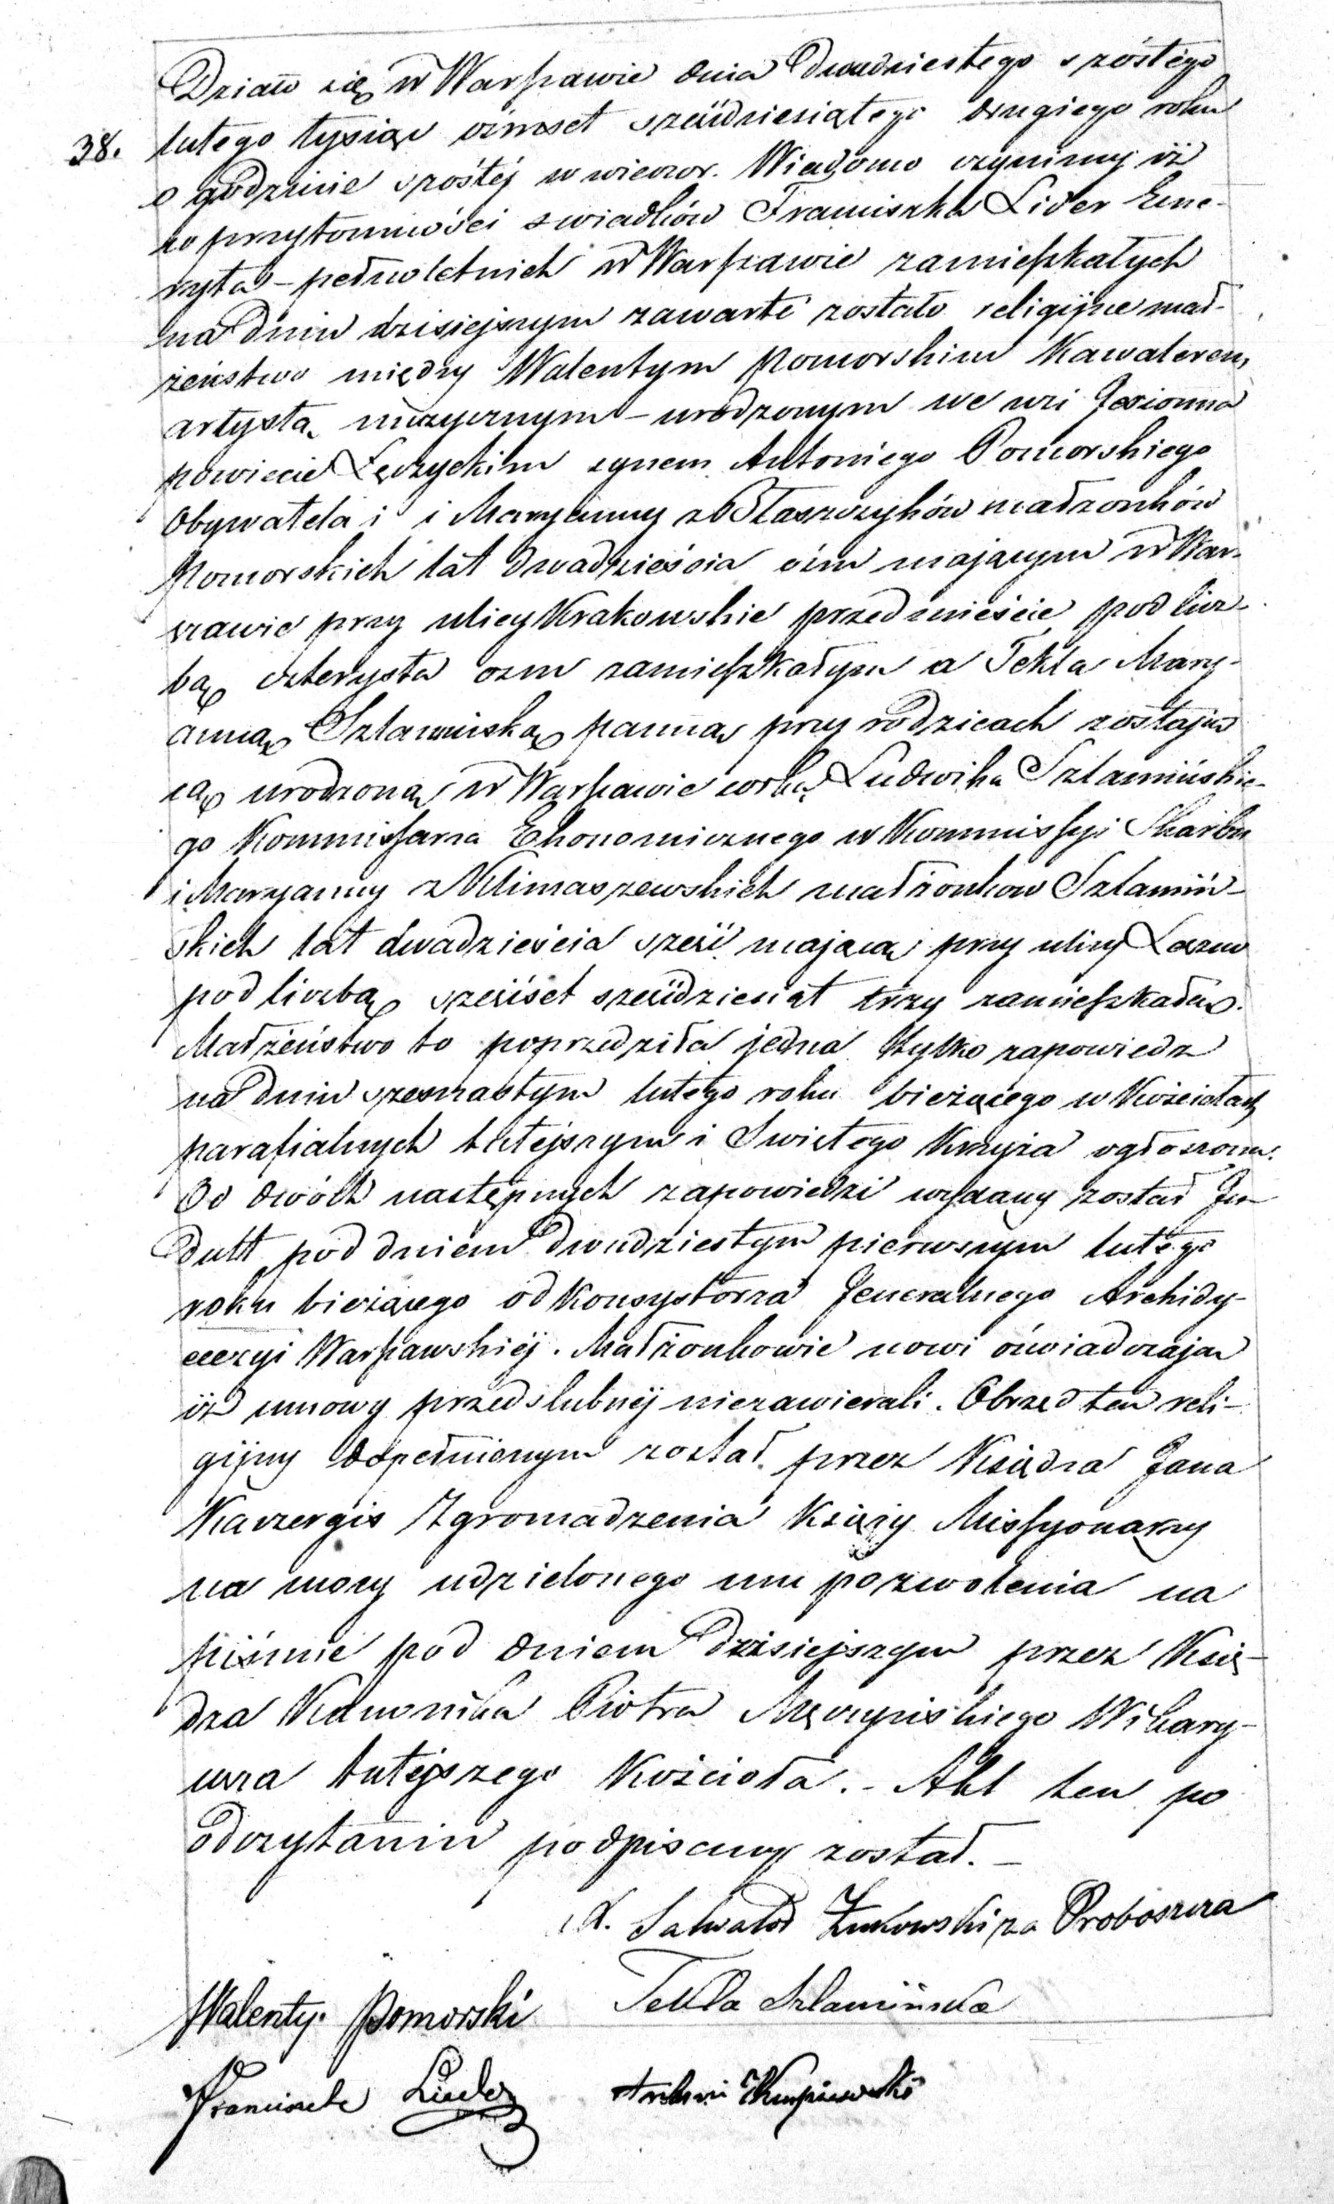 Działo się w Warszawie dnia dwudziestego szóstego
38. lutego tysiąc ośmset sześćdziesiątego drugiego roku
o godzinie szóstej w wieczor. Wiadomo czynimy iż
w przytomności świadków Franciszka Lider Eme-
ryta – pełnoletnich w Warszawie zamieszkałych
na dniu dzisiejszym zawarte zostało religijne mał-
żeństwo między Walentym Pomorskim Kawalerem,
artystą muzycznym – urodzonym we wsi Jesionna
powiecie Łęczyckim synem Antoniego Pomorskiego
Obywatela i i Maryanny z Błaszczyków małżonków
Pomorskich lat dwadzieścia ośm mającym w War-
szawie przy ulicy Krakowskie przedmieście pod licz-
bą czterysta ośm zamieszkałym a Teklą Mary-
anną Szlamińską panną przy rodzicach zostając
cą urodzoną w Warszawie córką Ludwika Szlamińskie-
go Kommissarza Ekonomicznego w Kommissyi Skarbu
i Maryanny z Klimaszewskich małżonków Szlamiń-
skich lat dwadzieścia sześć mającą przy ulicy Leszno
pod liczbą sześćset sześćdziesiąt trzy zamieszkałą.
Małżeństwo to poprzedziła jedna tylko zapowiedz
na dniu szesnastym lutego roku bieżącego w Kościołach
parafialnych tutejszym i Swiętego Krzyża ogłoszona.
Od dwóch następnych zapowiedzi wydany został In-
dult pod dniem dwudziestym pierwszym lutego
roku bieżącego od Konsystorza Jeneralnego Archidy-
ecezyi Warszawskiej. Małżonkowie nowi oświadczają
iż umowy przedslubnej niezawierali. Obrzęd ten reli-
gijny dopełnionym został przez Księdza Jana
Kaczergis Zgromadzenia Księży Missyonarzy
na mocy udzielonego mu pozwolenia na
piśmie pod dniem dzisiejszym przez Księ-
dza Kanonika Piotra Męczyńskiego Wikary-
usza tutejszego Kościoła. – Akt ten po
odczytaniu podpisany został. –
X. Salwator Żukowski za Proboszcza
Walenty Pomorski Tekla Szlamińska
Franciszek Lieder